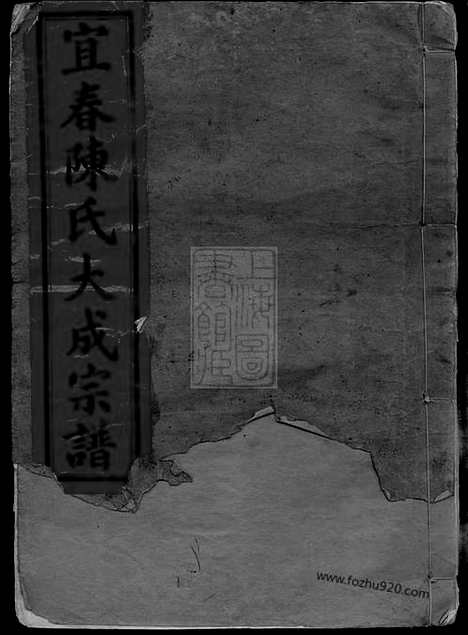 宜春陳氏大成宗譜
上海圖
書館藏
www.fozhu920.com